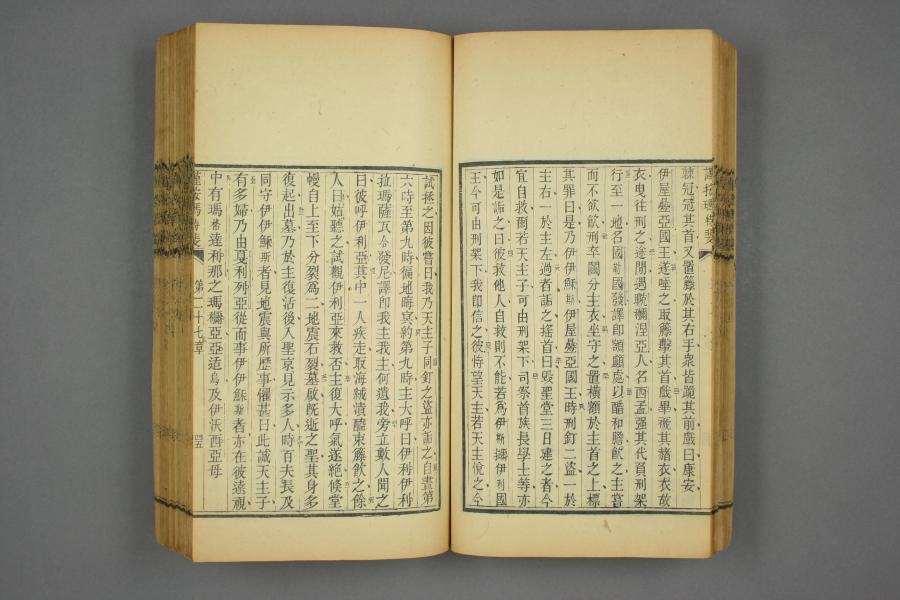 棘冠冠其首又置籐於其右手衆皆跪其前戲曰康安
伊屋叠亞國王遂唾之取籐擊其首戲畢褫其赭衣衣故
衣曳往刑之途間遇聀爛涅亞人名西孟强其代負刑架
行至一地名國勒國發譯即顱處以醋和膽飮之主嘗
而不欲飮刑卒鬮分主衣坐守之置橫額於主首之上標
其罪曰是乃伊伊穌斯伊屋叠亞國王時刑釘二盜一於
主右一於主左過者詬之搖首曰毀聖堂三日建之者今
宜自救爾若天主子可由刑架下司祭首族長學士等亦
如是詬之曰彼救他人自救則不能若爲伊斯擂伊利國
王今可由刑架下我即信之彼恃望天主若天主悅之今
試拯之因彼嘗曰我乃天主子同釘之盜亦詬之自晝第
六時至第九時徧地晦冥約第九時主大呼曰伊利伊利
拉瑪薩瓦合發尼譯即我主我主何遺我旁立數人聞之
曰彼呼伊利亞其中一人疾走取海絨漬醯束籐飮之餘
人曰姑聽之試觀伊利亞來救否主復大呼氣遂絶倏堂
幔自上至下分裂爲二地震石裂墓啟旣逝之聖其身多
復起出墓乃於主復活後入聖京見示多人時百夫長及
同守伊伊穌斯者見地震與所歷事懼甚曰此誠天主子
有多婦乃由戛利列亞從而事伊伊穌斯者亦在彼遠視
中有瑪格達利那之瑪爾亞亞适烏及伊沃西亞母
第二十七章